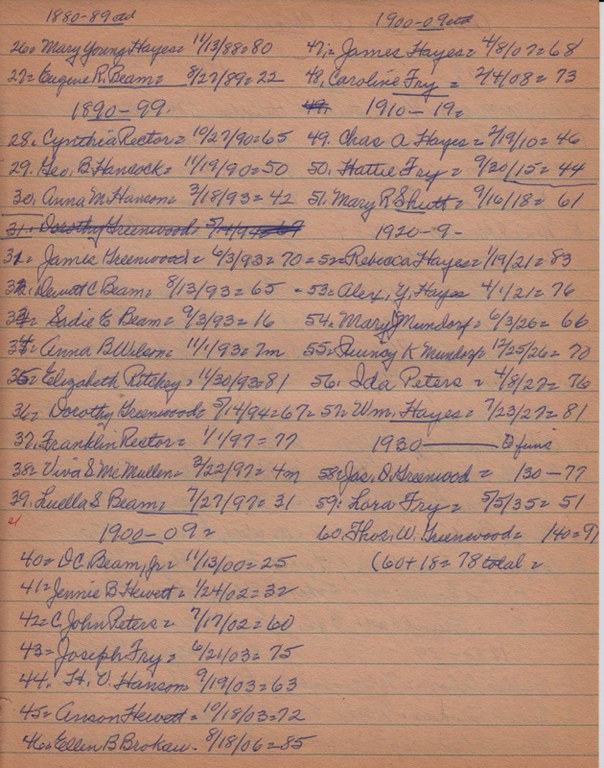 1880-89 ctd
26= Mary Young Hayes= 11/13/88=80
27= Eugene R. Beam= 8/27/89=22
1890-99.
28. Cynthia Rector= 10/27/90=65
29. Geo. B Hancock= 11/19/90=50
30. Anna M. Hansom= 3/18/93=42
31. Dorothy Greenwood= 5/14/94=67
31= James Greenwood= 6/3/93=70=
32. Dewitt C Beam= 8/13/93=65
33= Sadie E Beam= 9/3/93=16
34= Anna B Wilson= 11/1/93=7m
35= Elizabeth Ritchey= 11/30/93=81
36= Dorothy Greenwood= 5/14/94=67=
37. Franklin Rector= 1/1/97=77
38= Viva S McMullen= 3/22/97=4m
39. Luella S Beam= 7/27/97=31
1900-09=
40= D.C. Beam, Jr= 11/13/00=25
41= Jennie B Hewett= 1/24/02=32
42= C. John Peters= 7/17/02=60
43= Joseph Fry= 6/21/03=75
44. H. V. Hansom 9/19/03=63
45= Anson Hewett= 10/18/03=72
46= Ellen B Brokaw- 8/18/06=85
1900-09 ctd
47.= James Hayes= 4/8/07=68
48. Caroline Fry= 2/4/08=73
49. 1910-19=
49. Chas A Hayes= 2/19/10=46
50. Hattie Fry= 9/20/15=44
51. Mary R Shutt= 9/16/18=61
1920-9-
52= Rebecca Hayes= 1/19/21=83
53= Alex. Y. Hayes 4/1/21=76
54. Mary J Mundorf= 6/3/26=66
55= Quincy K Mundorf= 12/25/26=70
56. Ida Peters= 4/8/27=76
57= Wm. Hayes= 7/23/27=81
1930
58= Jas. D. Greenwood= 130-77
59= Lora Fry= 5/5/35=51
60. Thos. W. Greenwood= 140=91
(60+18=78 total=